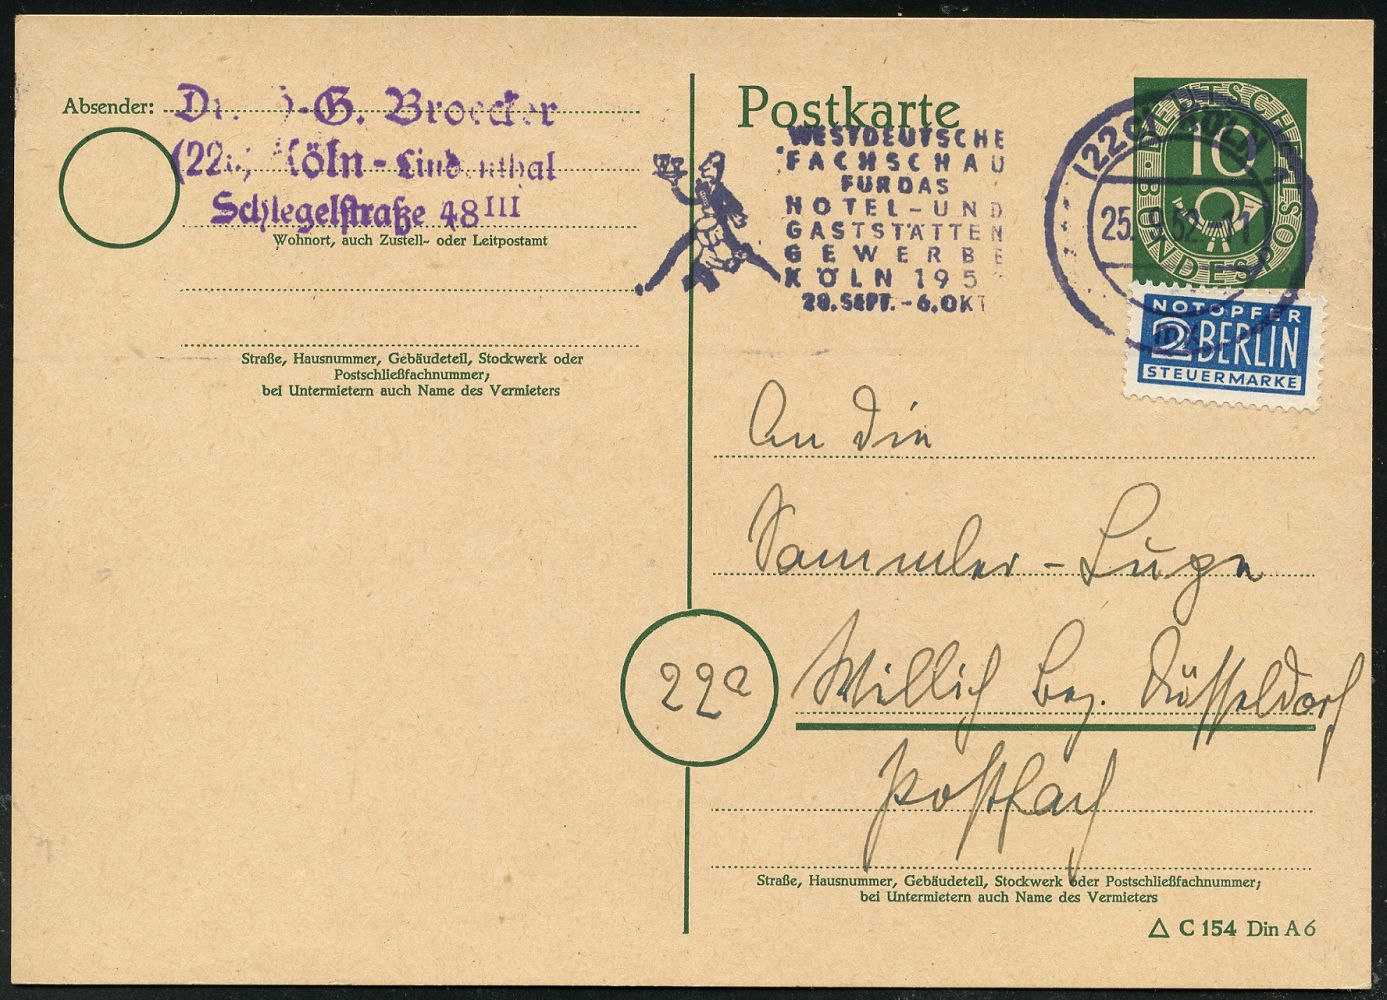 Absender: Dr. -G. Broecker
(22c) Köln - Lindenthal
Schlegelstraße 48 III
Wohnort, auch Zustell- oder Leitpostamt
Straße, Hausnummer, Gebäudeteil, Stockwerk oder
Postschließfachnummer;
bei Untermietern auch Name des Vermieters
Postkarte
WESTDEUTSCHE
FACHSCHAU
FÜR DAS
HOTEL-UND
GASTSTÄTTEN
GEWERBE
KÖLN 195
28.SEPT.-6.OKT
DEUTSCHE
10
BUNDESPOST
(22c) KÖLN
25.9.52.-11
NOTOPFER
2 BERLIN
STEUERMARKE
An die
Sammler-Luge
22a
Willich Bez. Düsseldorf
Postfach
Straße, Hausnummer, Gebäudeteil, Stockwerk oder Postschließfachnummer;
bei Untermietern auch Name des Vermieters
△ C 154 Din A 6